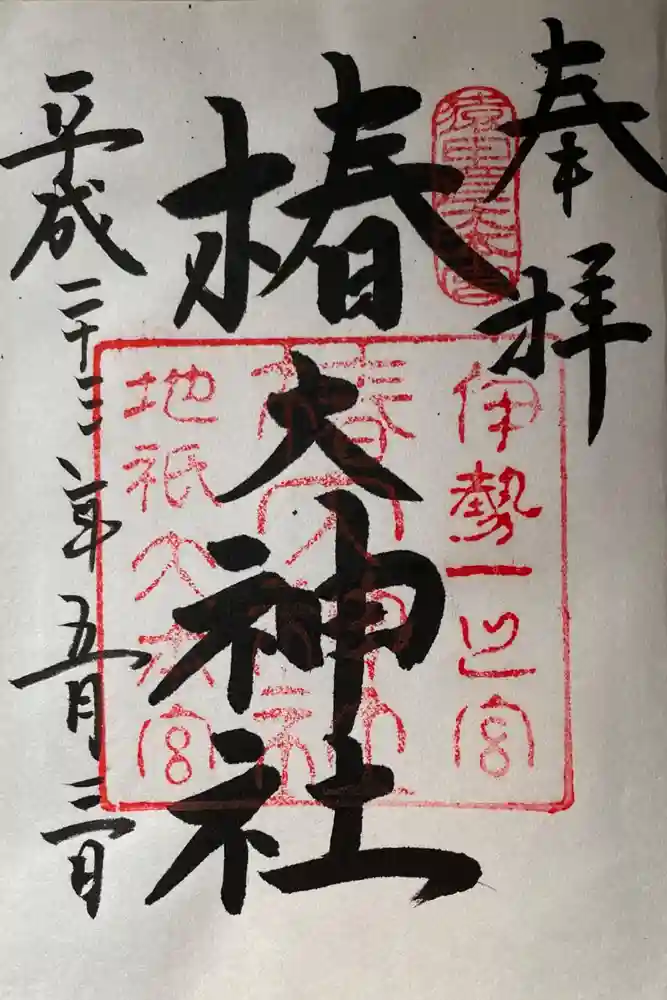 奉拝
猿田彦大本宮
椿大神社
伊勢一之宮
椿大神社
地祇大本宮
平成二十三年五月三日